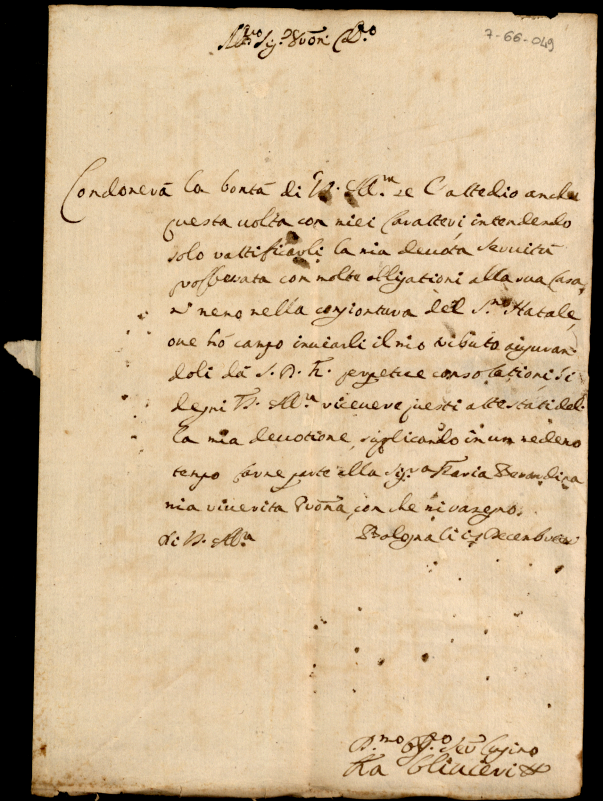 Ill.mo Sig.r Pron Col.mo
7-66-049
Condonerà la bontà di V. Ill.ma se l'attedio anche
questa uolta con miei Caratteri intendendo
solo rattificarli la mia deuota Seruitù
professata con molte obligationi alla sua Casa,
nè meno nella congiontura del S.mo Natale,
oue hò campo inuiarli il mio tributo auguran
doli dà S. D. M. perpetue consolationi. Si
degni V. Ill.ma riceuere questi attestati del
la mia deuotione, suplicando in un medemo
tempo farne parte alla Sig.ra Maria
mia riuerita Prona, con che mi rasegno.
di V. Ill.ma Bologna li Decembre
D.mo Ser Cugino